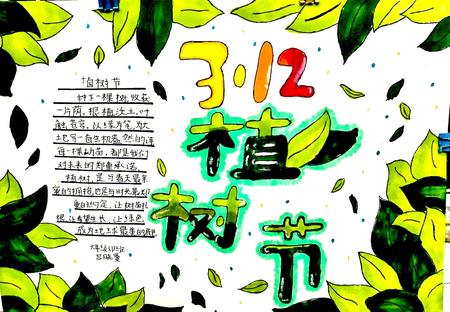 3·12
植树节
植树节
种下一棵树,收获
一片荫。根植沃土,叶
触苍穹,以绿为笔,为大
地写一首生机盎然的诗
每一棵幼苗,都是我们
对未来的郑重承诺。
植树,是与春天最亲
密的拥抱,也是与时光最郑
重的约定,让树苗扎
根,让希望生长,让绿色
成为土地上最美的